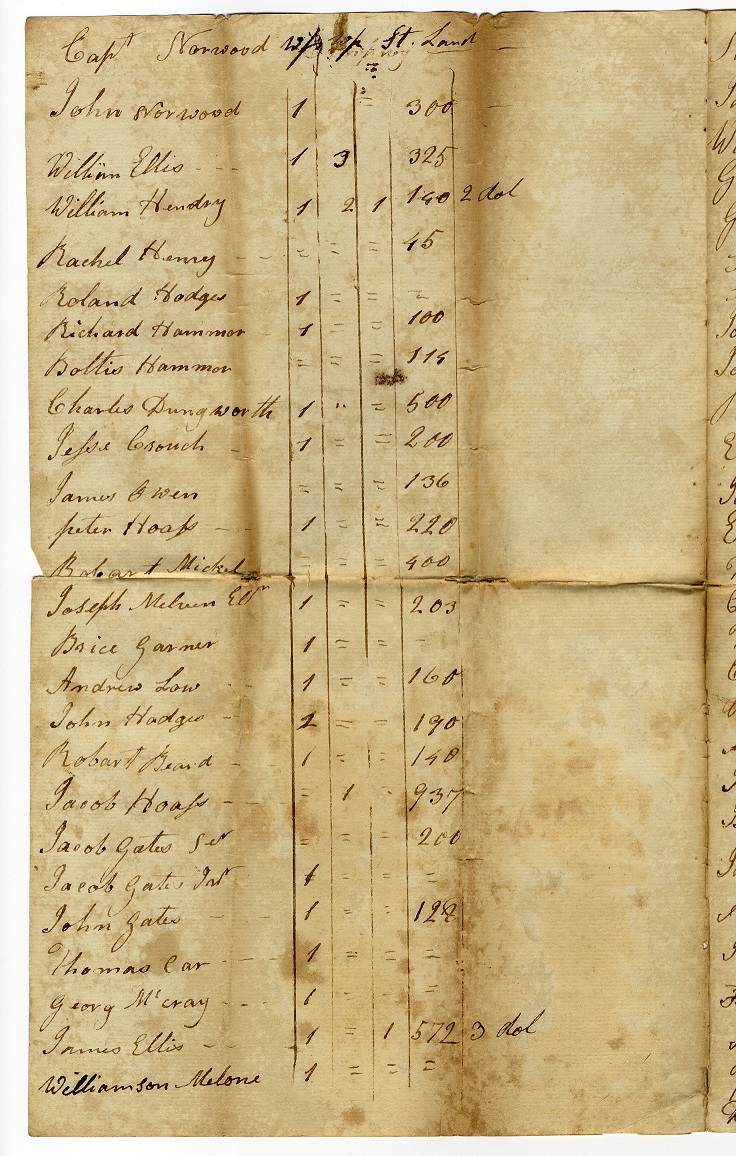 Capt Norwood w/p b/p St. Land
John Norwood 1 = 300
William Ellis - - 1 3 325
William Hendry 1 2 1 140 2 dol
Rachel Henry - - = = = 45
Roland Hodges 1 = = =
Richard Hammor 1 = = 100
Bottis Hammor = = 114
Charles Dungworth 1 " = 500
Jesse Crouch - 1 = = 200
James Owen = = = 136
peter Hoass - - 1 = = 220
Robart Mickel 400
Joseph Melven 1 = = 203
Brice Garner 1 = = -
Andrew Low - 1 = = 160
John Hodges - 1 = = 190
Robart Beard - 1 = = 140
Jacob Hoass - - = 1 - 937
Jacob Gates Ser = = = 200
Jacob Gates Jnr 1 = = =
John Gates - - 1 = = 128
Thomas Car - - - 1 = = =
Georg Mccray - - - 1 = = =
James Ellis - - 1 = 1 572 3 dol
Williamson Melone 1 = = =